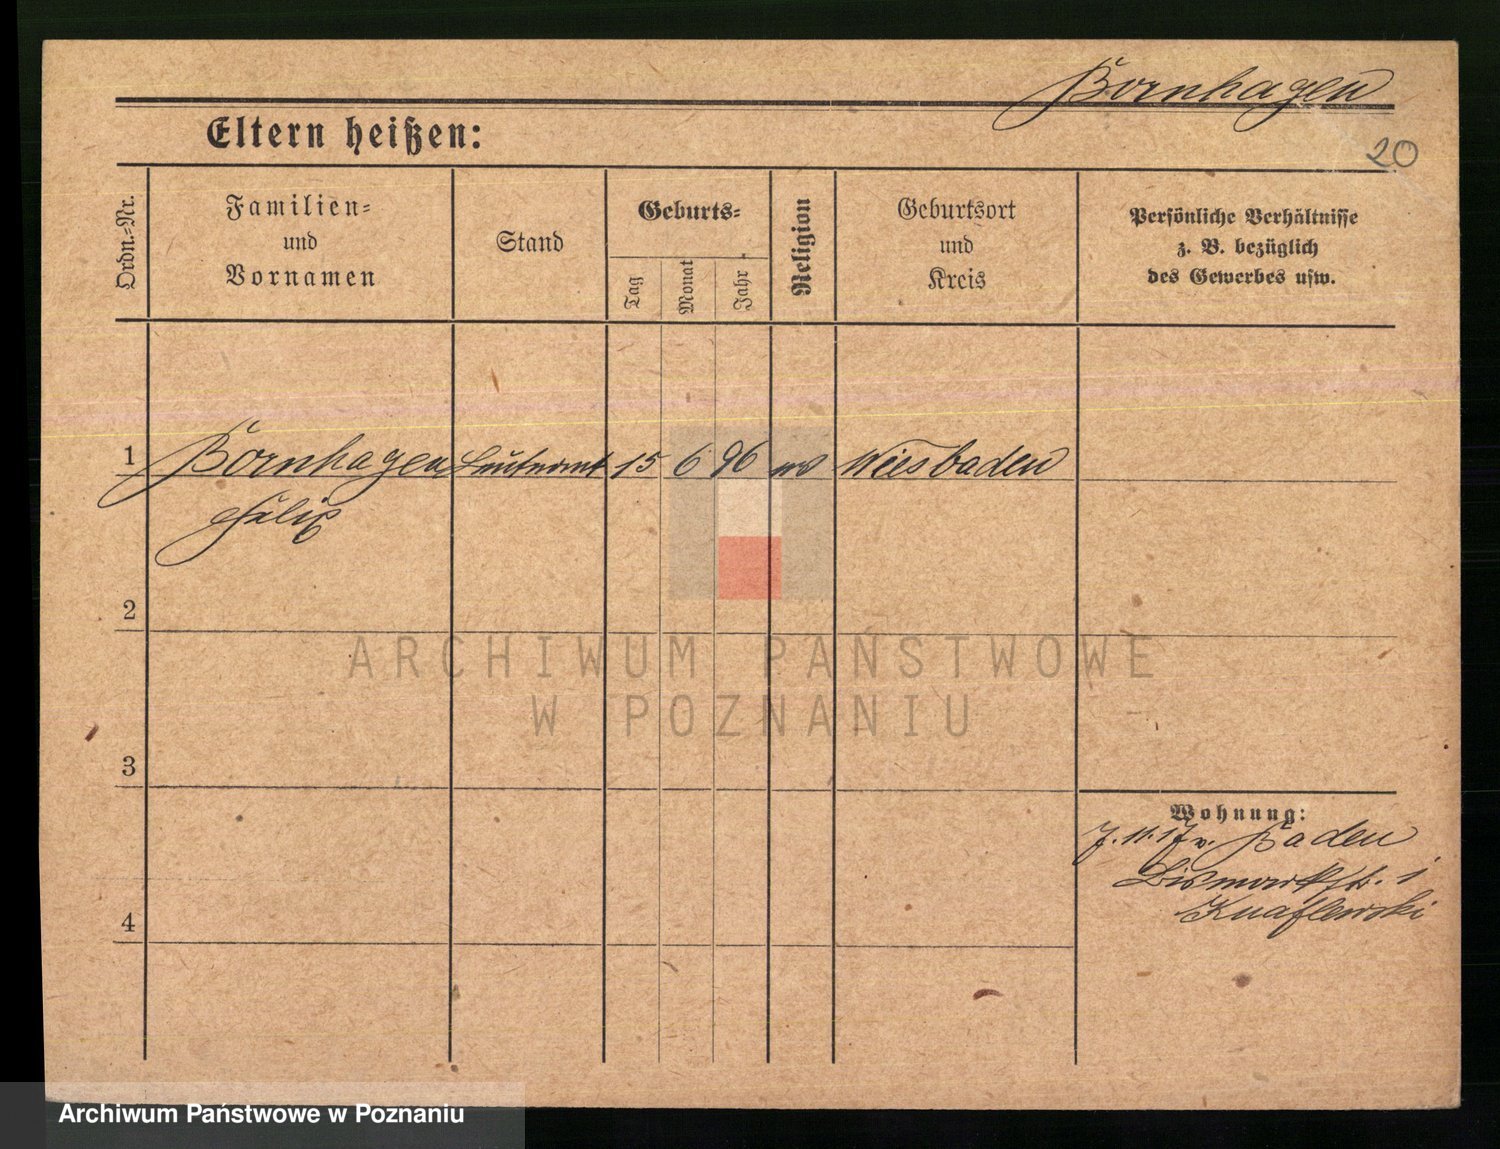 Bornhagen
Eltern heißen:
20
Ordn.=Nr.
Familien=
und
Vornamen
Stand
Geburts=
Tag
Monat
Jahr
Religion
Geburtsort
und
Kreis
Persönliche Verhältnisse
z. B. bezüglich
des Gewerbes usw.
1 Bornhagen Leutnant 15 6 96 Wiesbaden
2
3
4
Wohnung:
7.11.17 v. Baden
Bismarkstr. 1
Knaflewski
ARCHIWUM PAŃSTWOWE
W POZNANIU
Archiwum Państwowe w Poznaniu